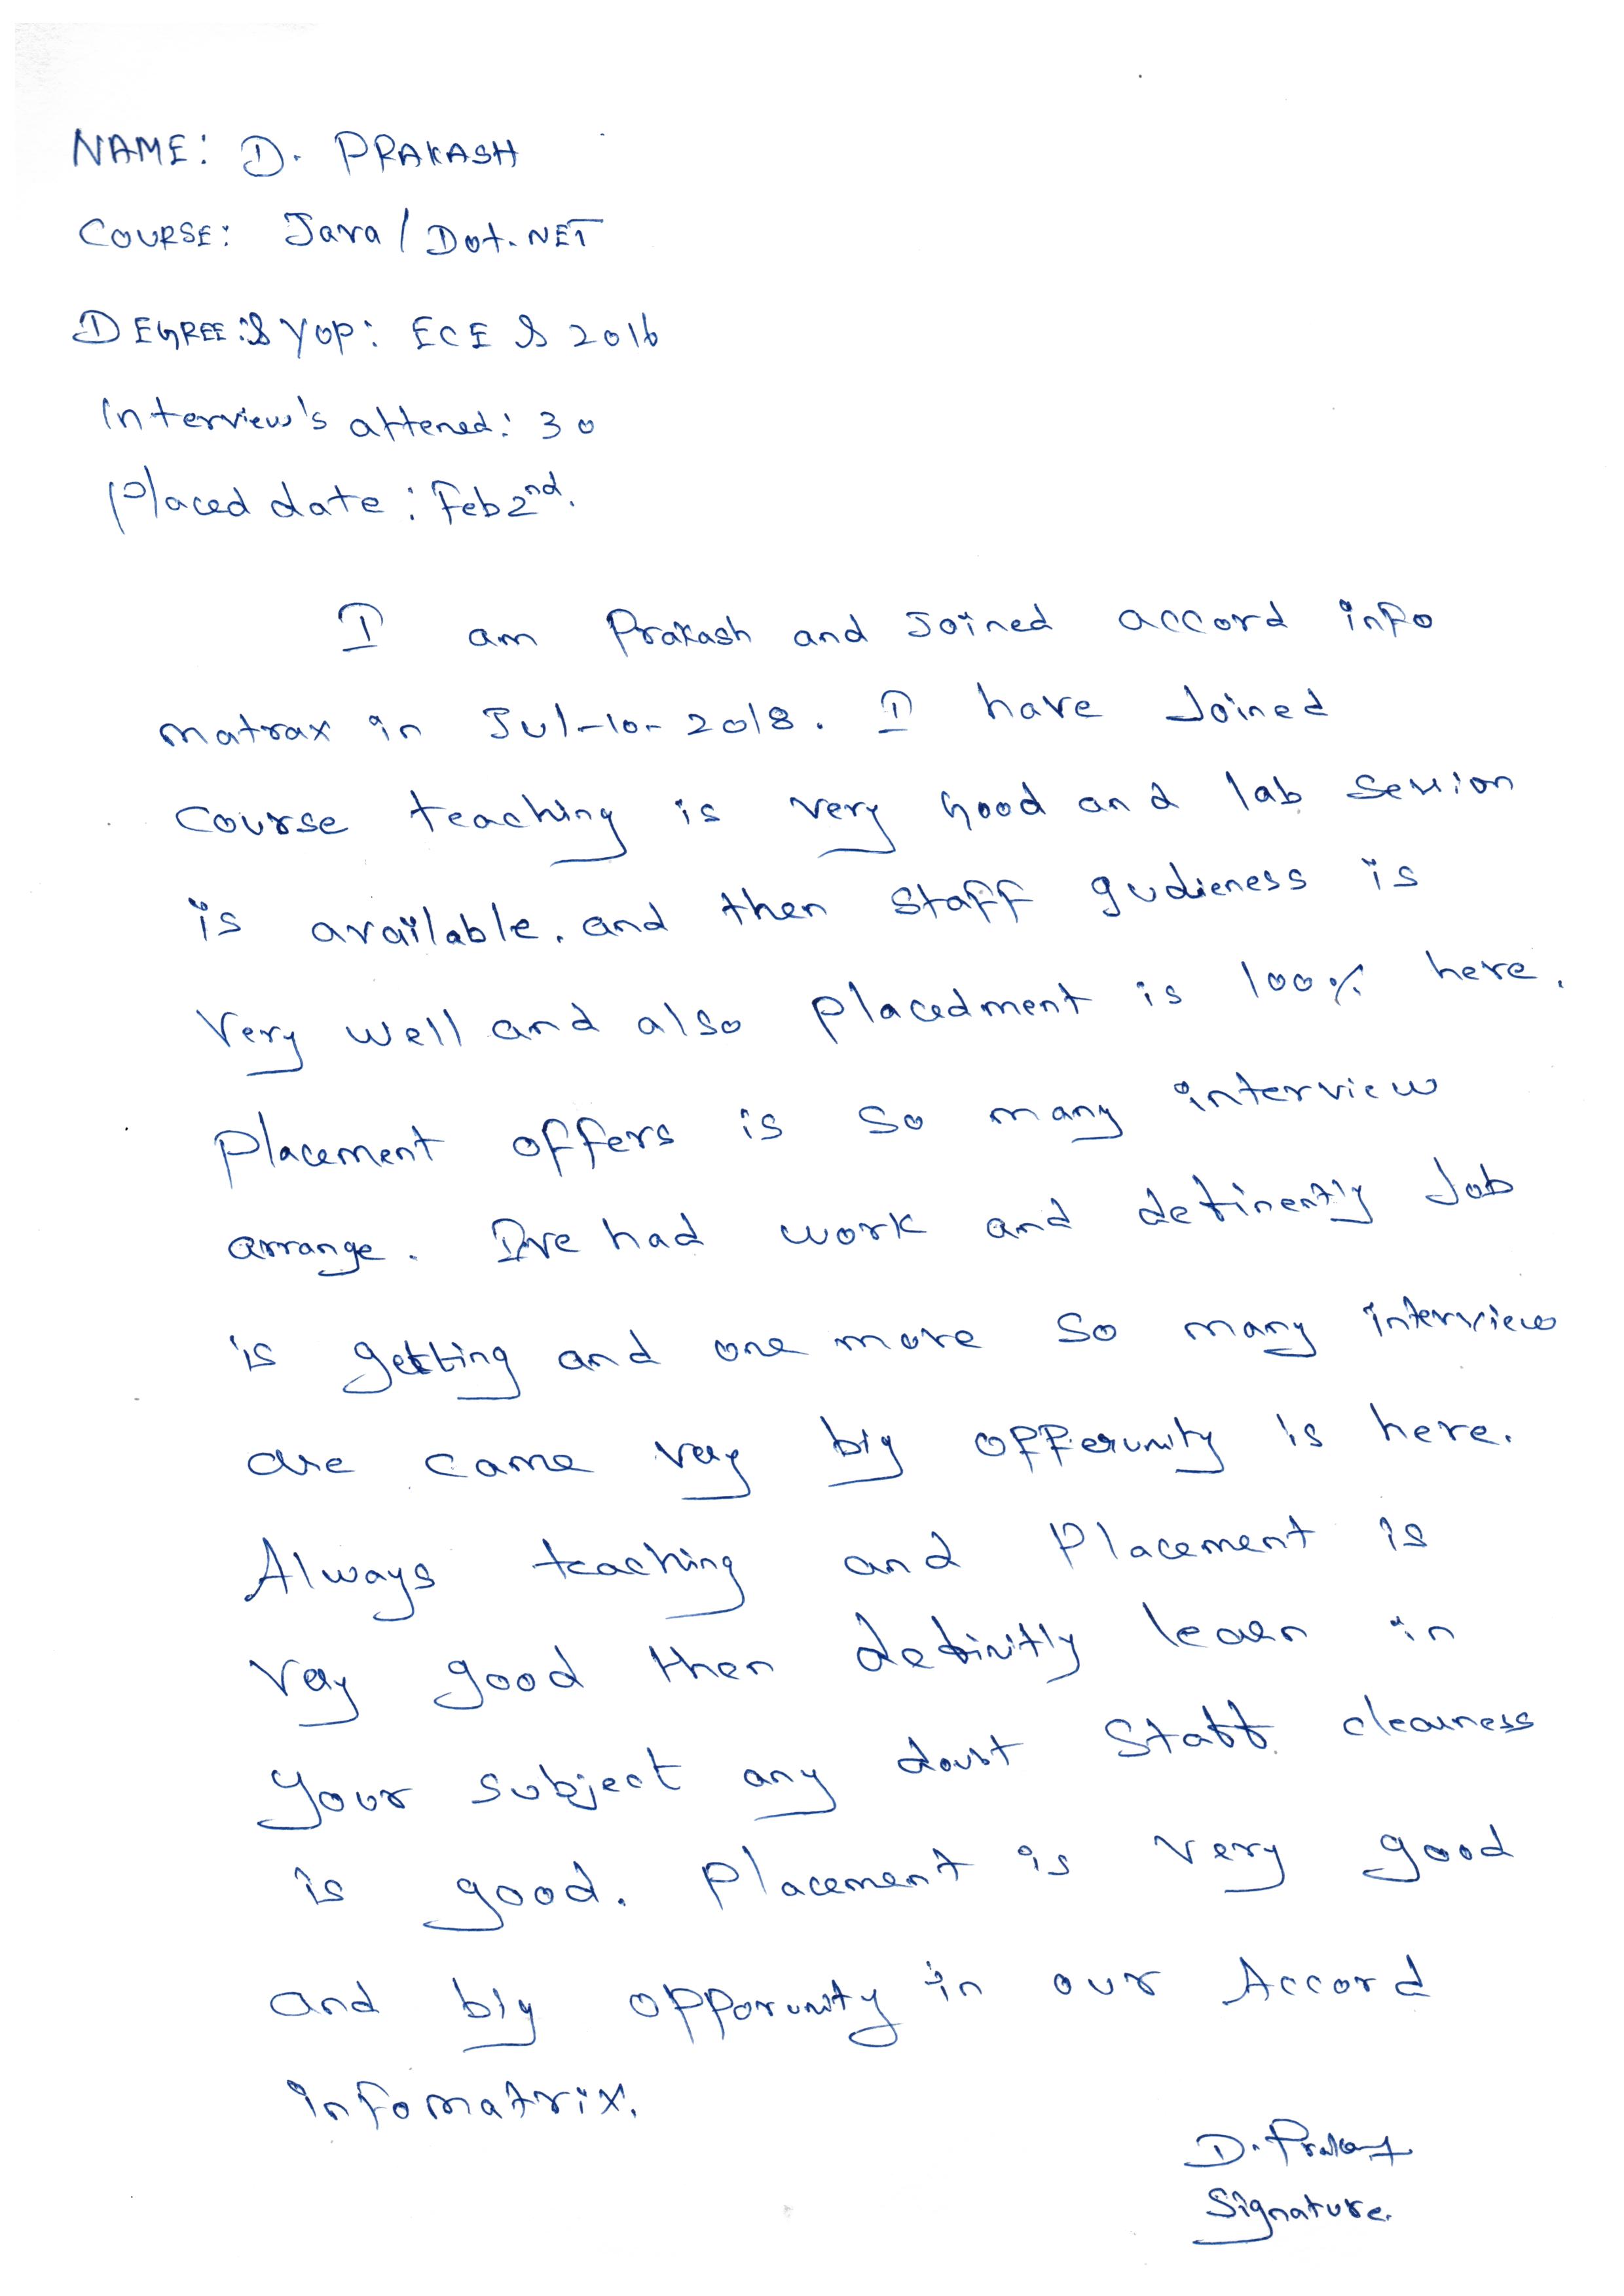 NAME: D. PRAKASH
COURSE: Java / Dot.NET
DEGREE:& YOP: ECE & 2016
Interview's attened: 30
Placed date: Feb 2nd.
I am Prakash and Joined accord info
matrax in Jul-10-2018. I have Joined
Course teaching is very Good and lab session
is available. and then Staff gudieness is
Very well and also Placedment is 100% here.
Placement offers is So many interview
arrange. I've had work and definently Job
is getting and one more So many interview
are came very big opperunity is here.
Always teaching and Placement is
very good then definitly learn in
Your Subject any doubt Staff clearness
is good. Placement is very good
and big opporunity in our Accord
infomatrix.
D. Prakash
Signature.